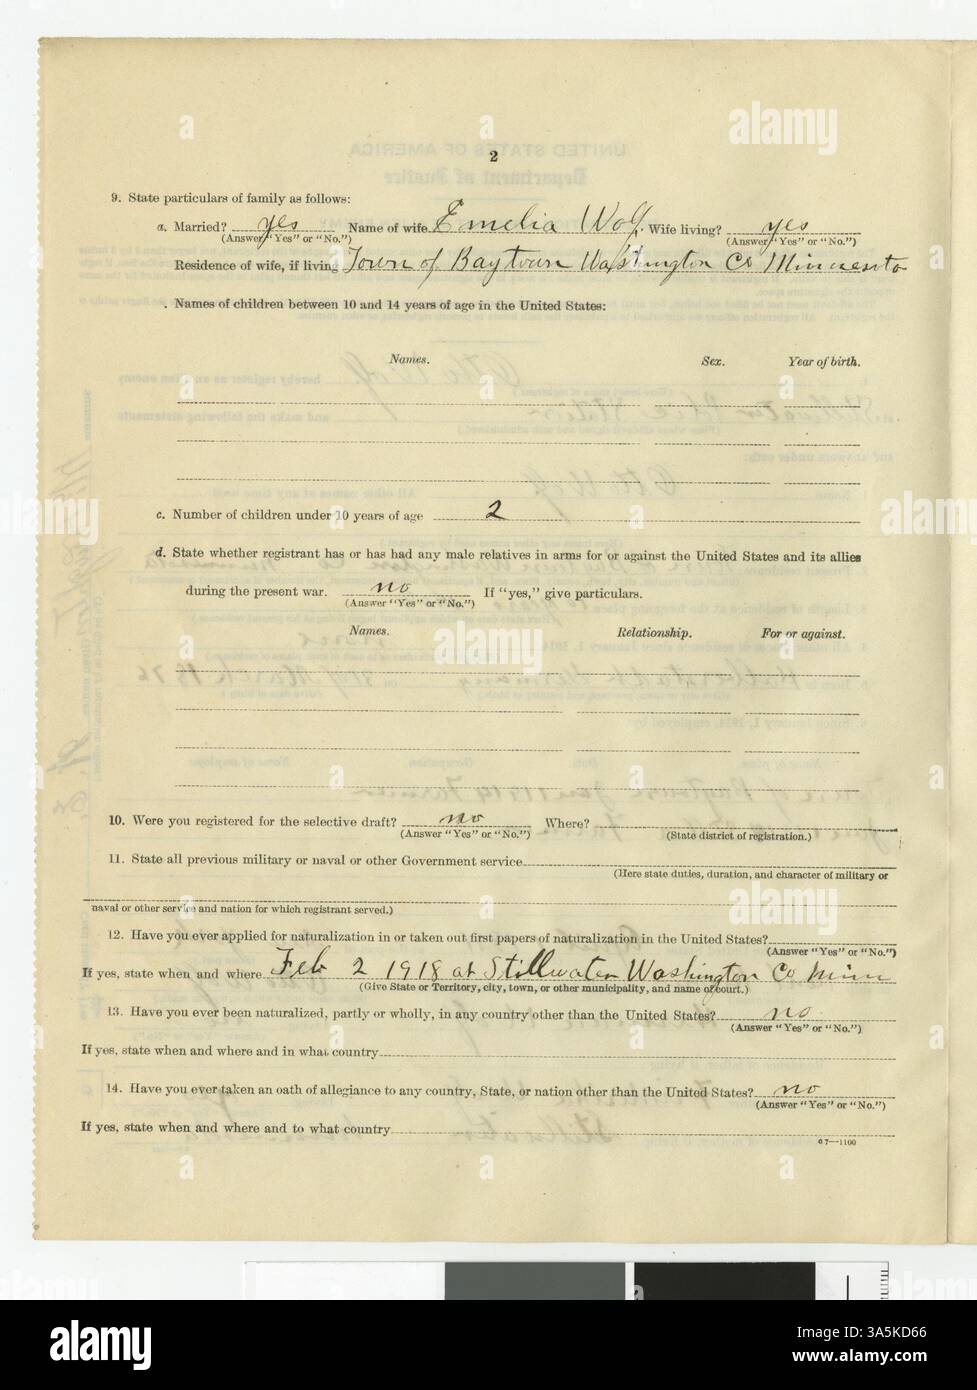 2
9. State particulars of family as follows:
a. Married? yes Name of wife Emelia Wolf. Wife living? yes
(Answer "Yes" or "No.") (Answer "Yes" or "No.")
Residence of wife, if living Town of Baytown Washington Co Minnesota
. Names of children between 10 and 14 years of age in the United States:
Names. Sex. Year of birth.
c. Number of children under 10 years of age 2
d. State whether registrant has or has had any male relatives in arms for or against the United States and its allies
during the present war. no If "yes," give particulars.
(Answer "Yes" or "No.")
Names. Relationship. For or against.
10. Were you registered for the selective draft? no Where?
(Answer "Yes" or "No.") (State district of registration.)
11. State all previous military or naval or other Government service
(Here state duties, duration, and character of military or
naval or other service and nation for which registrant served.)
12. Have you ever applied for naturalization in or taken out first papers of naturalization in the United States?
(Answer "Yes" or "No.")
If yes, state when and where Feb 2 1918 at Stillwater Washington Co Minn
(Give State or Territory, city, town, or other municipality, and name of court.)
13. Have you ever been naturalized, partly or wholly, in any country other than the United States? no
(Answer "Yes" or "No.")
If yes, state when and where and in what country
14. Have you ever taken an oath of allegiance to any country, State, or nation other than the United States? no
(Answer "Yes" or "No.")
If yes, state when and where and to what country
67—1100
alamy
Image ID: 3A5KD66
www.alamy.com